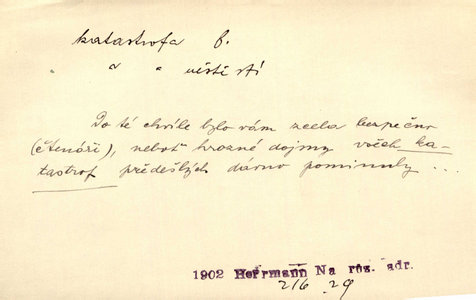 katastrofa f.
" " " věstí stí
Do té chvíle bylo vám zcela bezpečno
(čtenáři), neboť hrozné dojmy všech ka-
tastrof předešlých dávno pominuly ...
1902 Herrmann Na růz. adr.
216 29